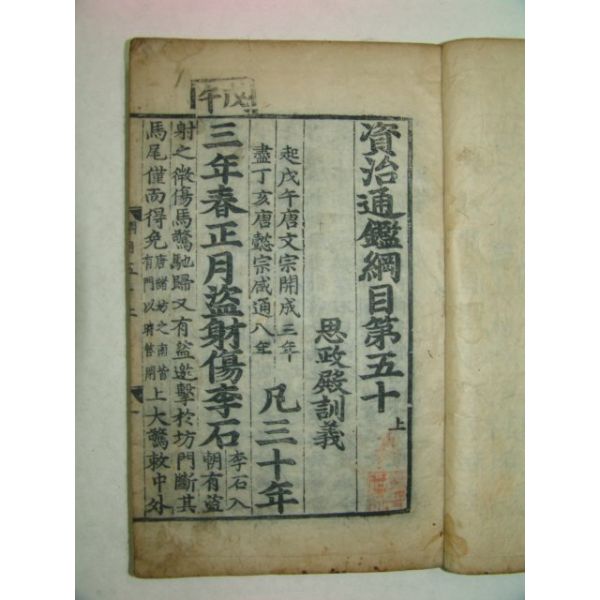 資治通鑑綱目第五十上
思政殿訓義
起戊午唐文宗開成三年
盡丁亥唐懿宗咸通八年
凡三十年
戊午
三年春正月盜射傷李石
李石入
朝有盜
射之微傷馬驚馳歸又有盜邀擊於坊門斷其
馬尾僅而得免
唐諸坊之南皆
有門以啓閉
上大驚敕中外